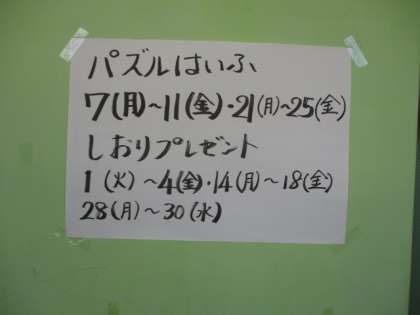 パズルはいふ
7(月)～11(金)・21(月)～25(金)
しおりプレゼント
1(火)～4(金)・14(月)～18(金)
28(月)～30(水)